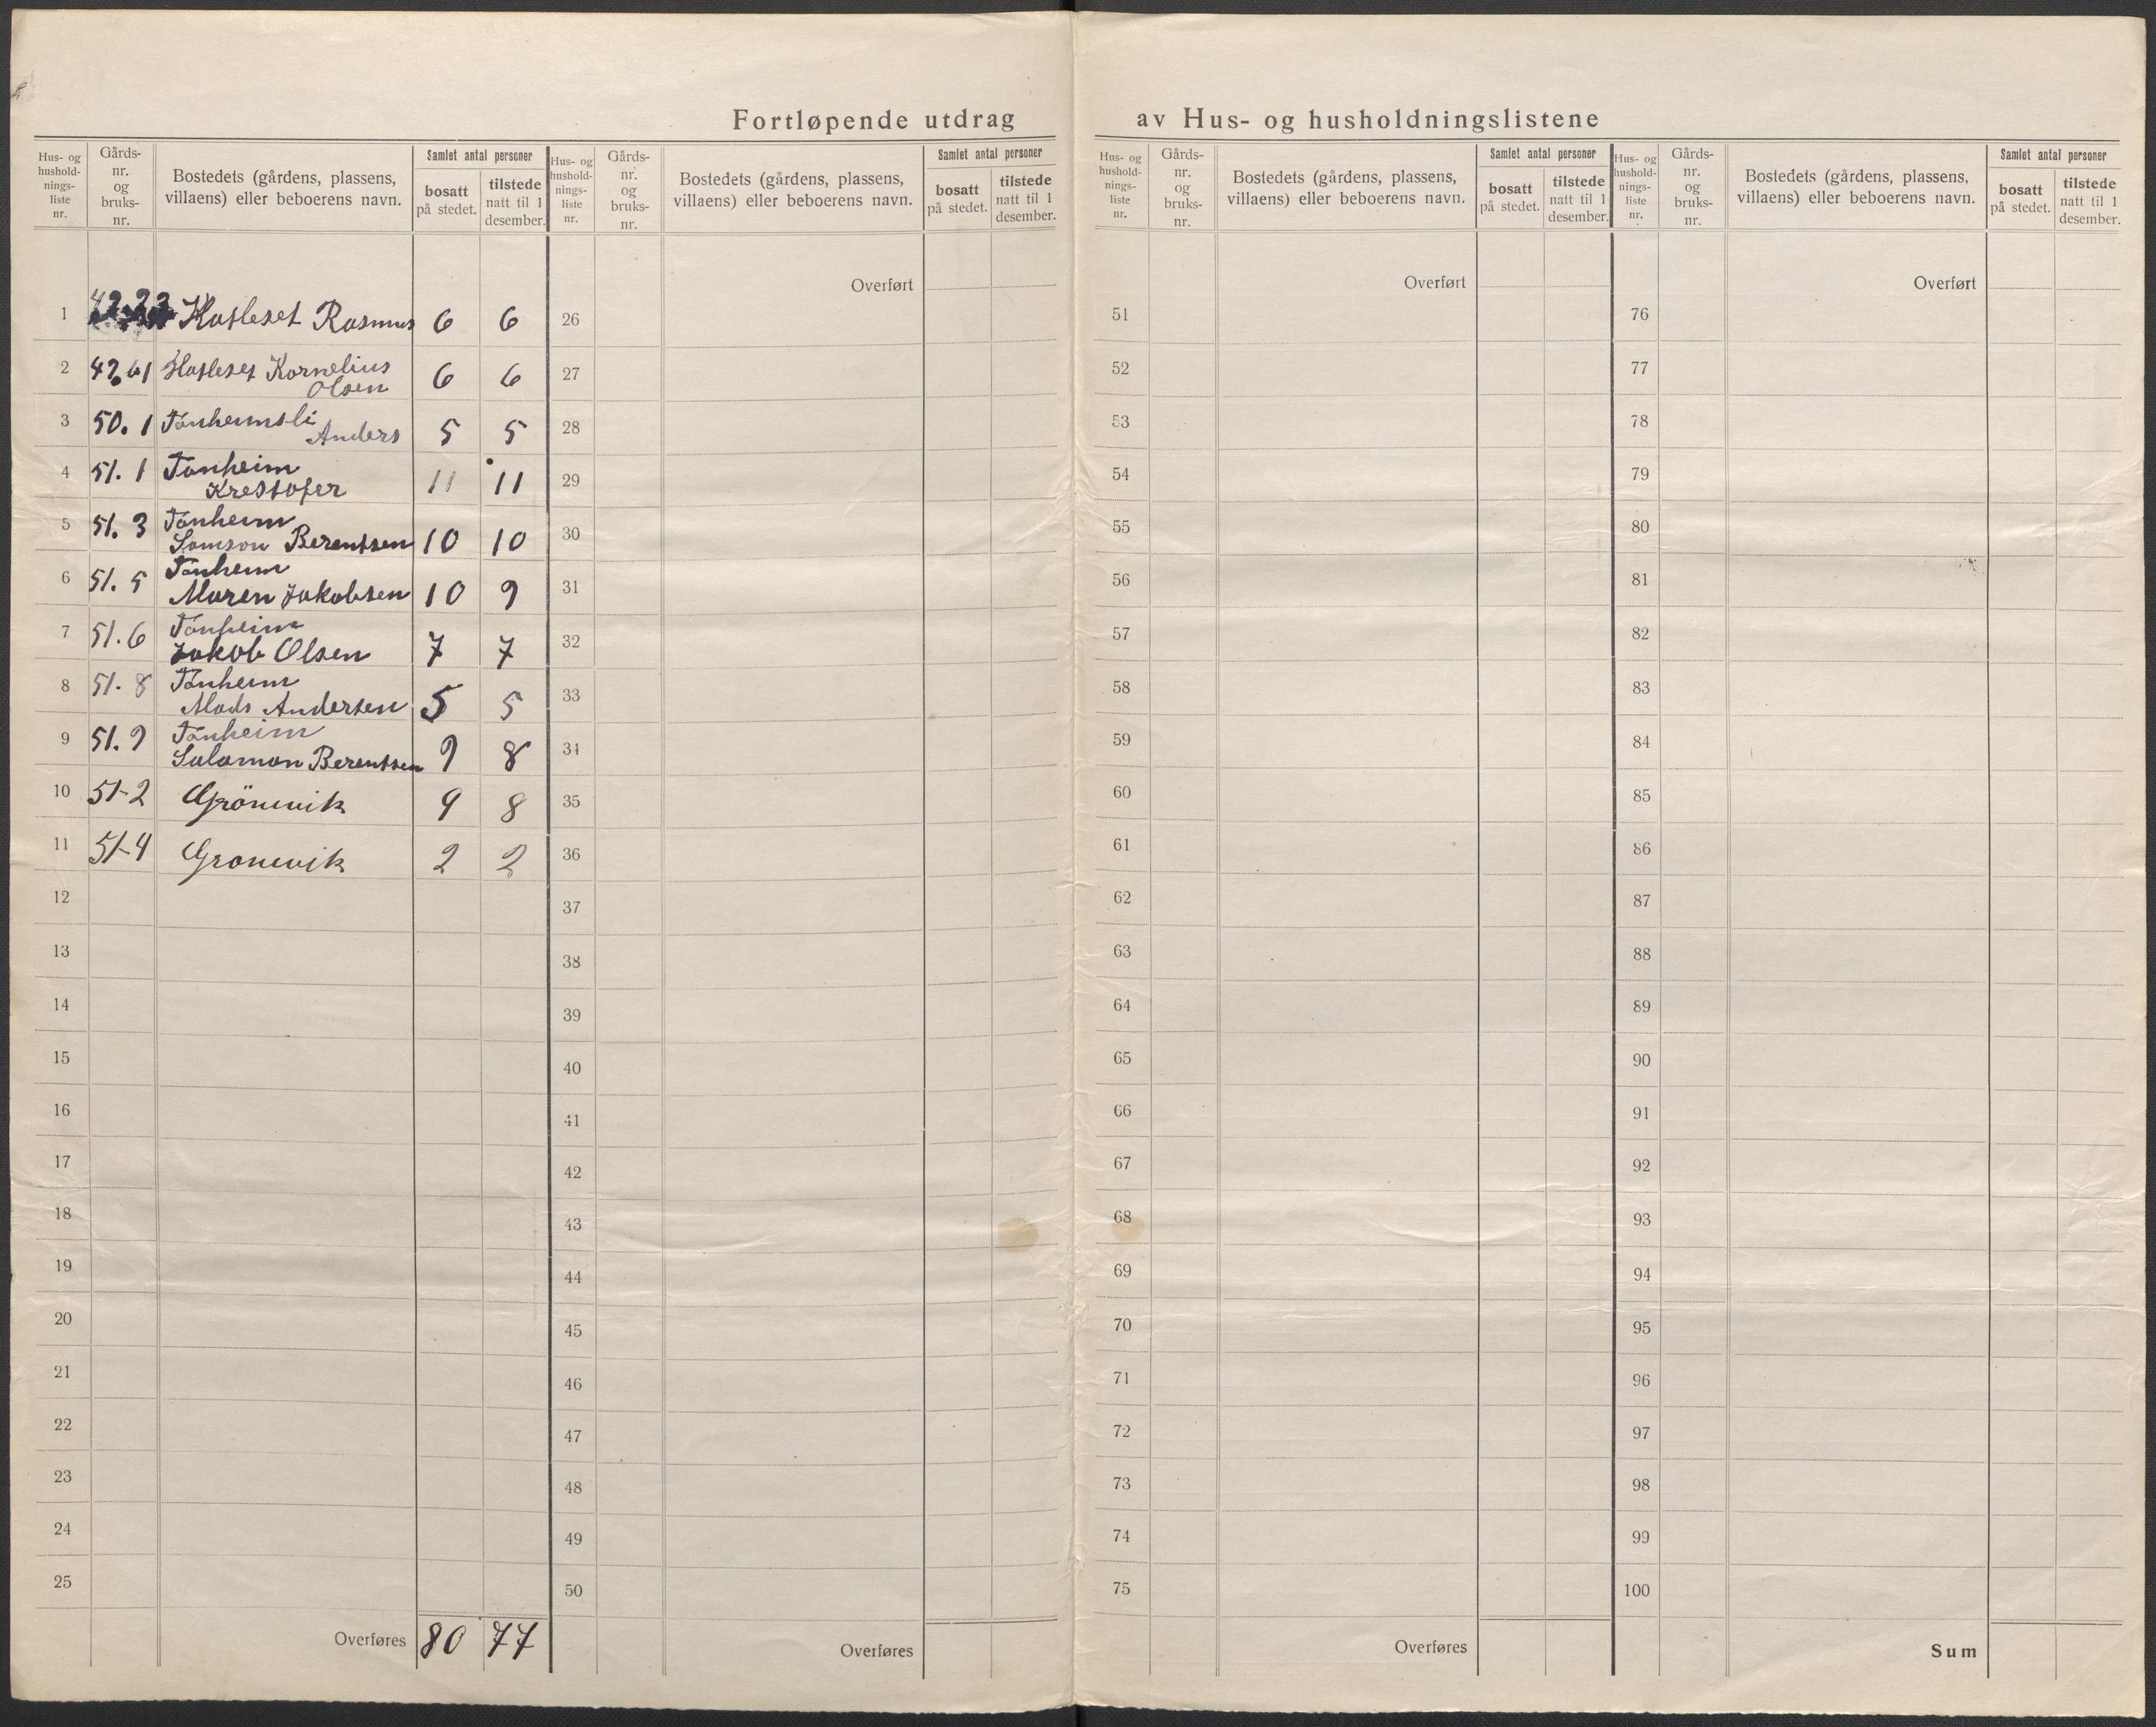 Fortløpende utdrag av Hus- og husholdningslistene
Hus- og hushold- nings- liste nr.
Gårds- nr. og bruks- nr.
Bostedets (gårdens, plassens, villaens) eller beboerens navn.
Samlet antal personer
bosatt på stedet.
tilstede natt til 1 desember.
Hus- og hushold- nings- liste nr.
Gårds- nr. og bruks- nr.
Bostedets (gårdens, plassens, villaens) eller beboerens navn.
Samlet antal personer
bosatt på stedet.
tilstede natt til 1 desember.
Hus- og hushold- nings- liste nr.
Gårds- nr. og bruks- nr.
Bostedets (gårdens, plassens, villaens) eller beboerens navn.
Samlet antal personer
bosatt på stedet.
tilstede natt til 1 desember.
Hus- og hushold- nings- liste nr.
Gårds- nr. og bruks- nr.
Bostedets (gårdens, plassens, villaens) eller beboerens navn.
Samlet antal personer
bosatt på stedet.
tilstede natt til 1 desember.
1 Rasmus 6 6
2 Kornelius
Olsen 6 6
3 50. 1 Tånheimsli
Anders 5 5
4 51. 1 Tanheim
Krestofer 11 11
5 51. 3 Tånheim
Samson Berentsen 10 10
6 51. 5 Tånheim
Maren Jakobsen 10 9
7 51. 6 Tånheim
Jakob Olsen 7 7
8 51. 8 Tånheim
Mads Andersen 5 5
9 51. 9 Tånheim
Salamon Berentsen 9 8
10 51-2 Grönevik 9 8
11 51-4 Gronevik 2 2
12
13
14
15
16
17
18
19
20
21
22
23
24
25
Overføres 80 77
Overført
26
27
28
29
30
31
32
33
34
35
36
37
38
39
40
41
42
43
44
45
46
47
48
49
50
Overføres
Overført
51
52
53
54
55
56
57
58
59
60
61
62
63
64
65
66
67
68
69
70
71
72
73
74
75
Overføres
Overført
76
77
78
79
80
81
82
83
84
85
86
87
88
89
90
91
92
93
94
95
96
97
98
99
100
Sum